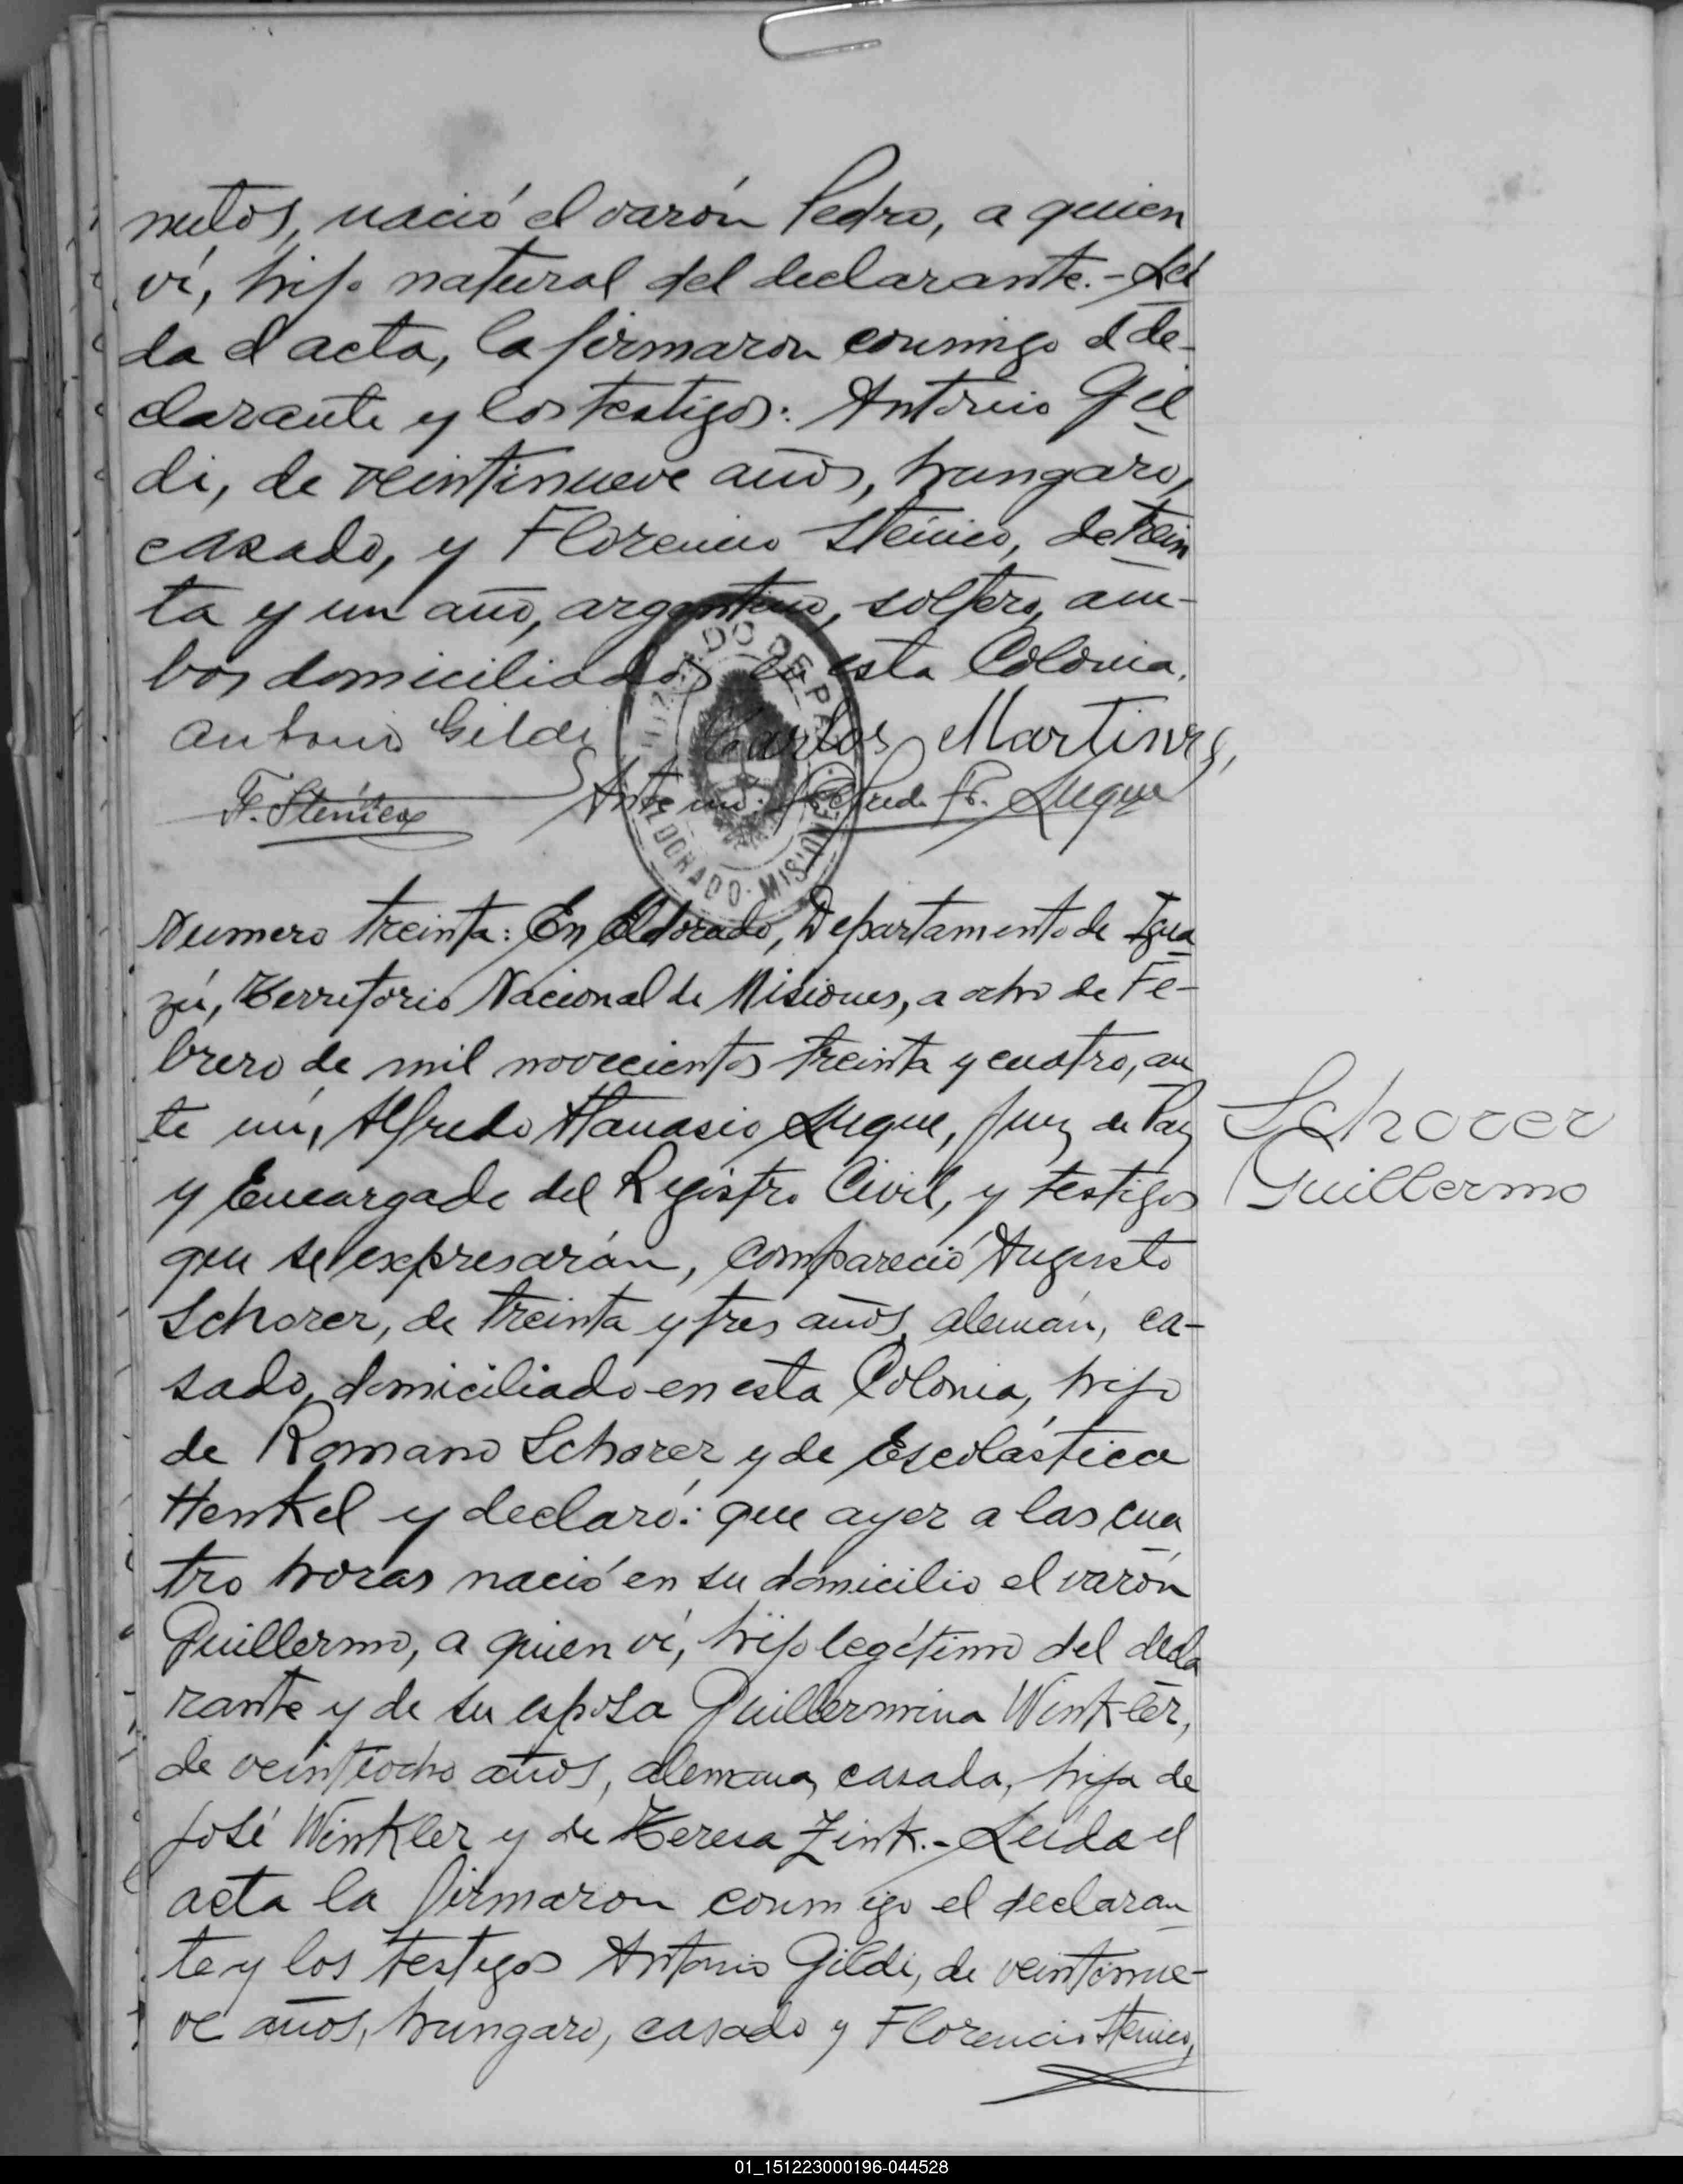 nutos, nació el varón Pedro, a quien
ví, hijo natural del declarante.- Leí
da el acta, la firmaron conmigo el de-
clarante y los testigos: Antonio Gil
di, de veintinueve años, hungaro,
casado, y Florencio Stenico, de trein
ta y un año, argentino, soltero, am-
bos domiciliados en esta Colonia.
Antonio Gildi Carlos Martinez,
F. Stenico Ante mi: Alfredo A. Luque
JUZGADO DE PAZ
ELDORADO - MISIONES
Numero treinta: En Eldorado, Departamento de Igua
zú, Territorio Nacional de Misiones, a ocho de Fe-
brero de mil novecientos treinta y cuatro, an
te mí, Alfredo Atanasio Luque, Juez de Paz
y Encargado del Registro Civil, y testigos
que se expresarán, compareció Augusto
Schorer, de treinta y tres años, alemán, ca-
sado, domiciliado en esta Colonia, hijo
de Romano Schorer y de Escolástica
Henkel y declaró: que ayer a las cua
tro horas nació en su domicilio el varón
Guillermo, a quien ví, hijo legítimo del decla
rante y de su esposa Guillermina Winkler,
de veintiocho años, alemana, casada, hija de
José Winkler y de Teresa Zink.- Leída el
acta la firmaron conmigo el declaran
te y los testigos Antonio Gildi, de veintinue-
ve años, hungaro, casado y Florencio Stenico,
Schorer
Guillermo
01_151223000196-044528